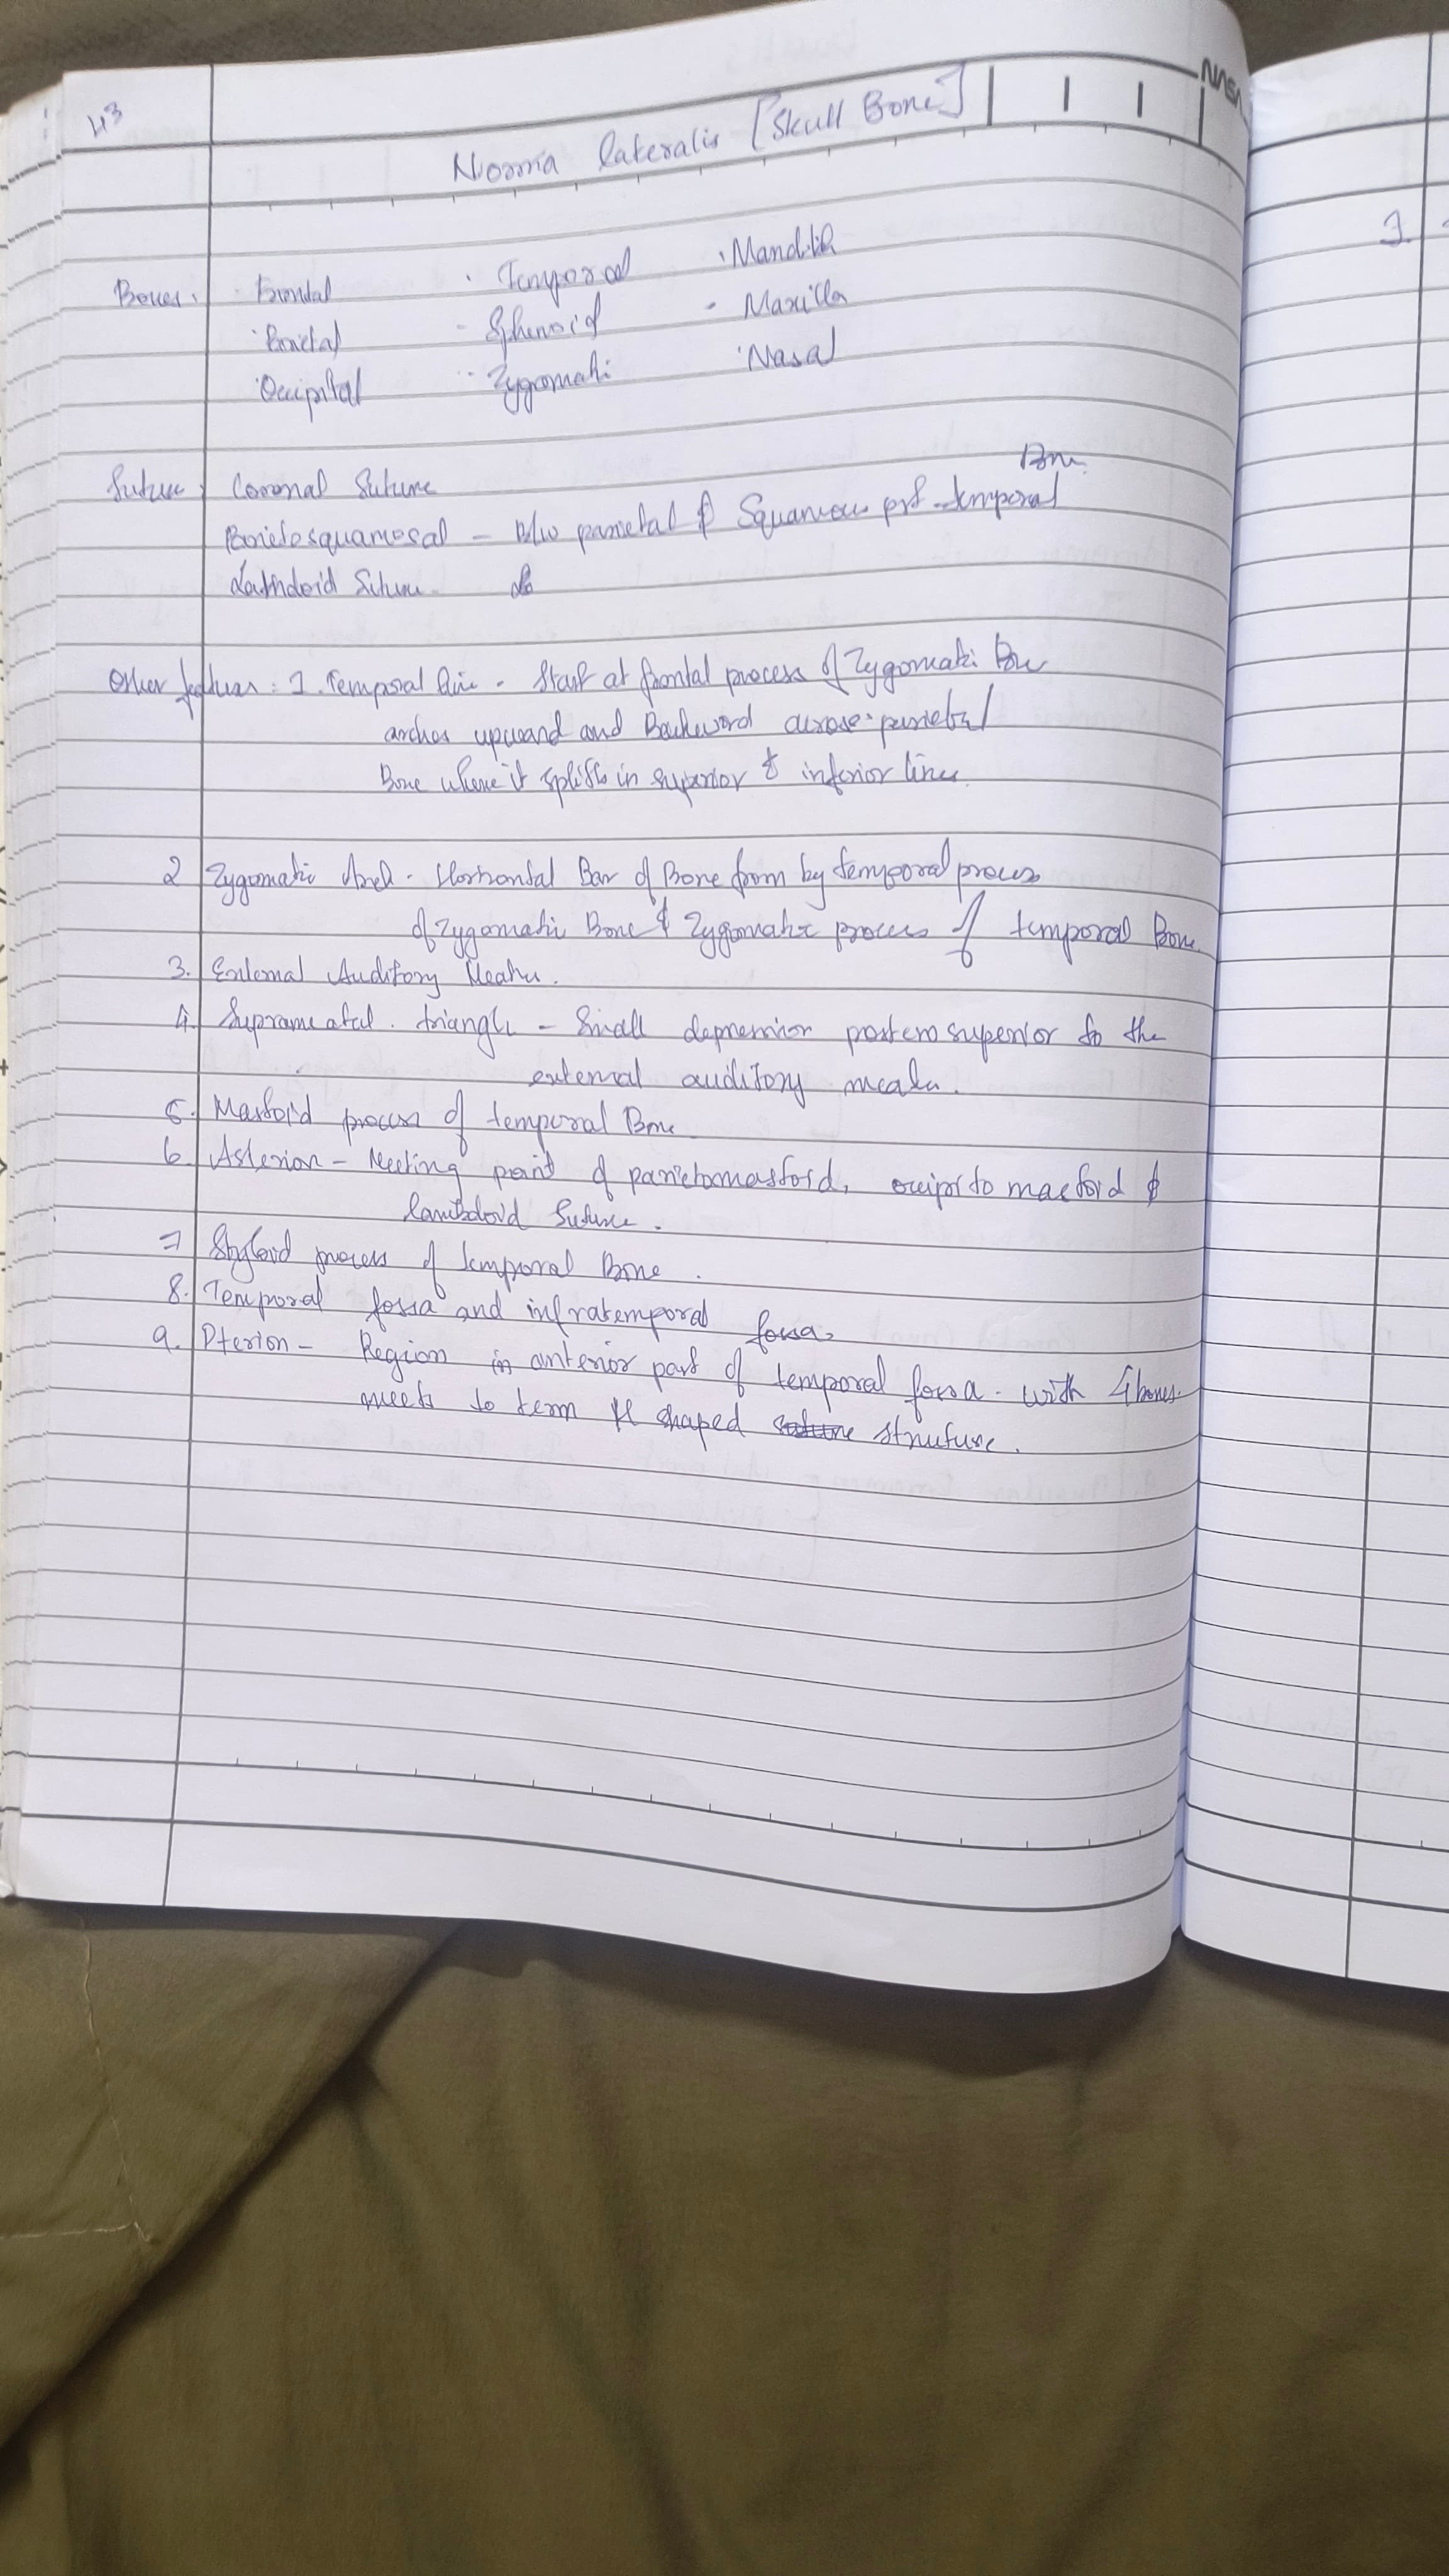 43
NASA
Norma lateralis [Skull Bone]
Bones. · Frontal · Temporal · Mandible
· Parietal - Sphenoid - Maxilla
· Occipital - Zygomati · Nasal
Bone.
Suture Coronal Suture
Parietosquamosal - B/w parietal & Squamous prt temporal
Lambdoid Suture
Other features : 1. Temporal line - Start at frontal process of Zygomati Bone
arches upward and Backward across parietal
Bone where it splitts in superior & inferior lines.
2 Zygomati Arch - Horizontal Bar of Bone from by temporal process
of Zygomati Bone & Zygomatic process of temporal Bone
3. External Auditory Meatu.
4. Suprameatal triangle - Small depression posterosuperior to the
external auditory meatu.
5. Mastoid process of temporal Bone
6. Asterion - Meeting point of parietomastoid, occipito mastoid &
lambdoid Suture.
7 Styloid process of temporal Bone.
8. Temporal fossa and infratemporal fossa.
9. Pterion - Region in anterior part of temporal fossa. with 4 bones.
meets to term H shaped struture.
1.